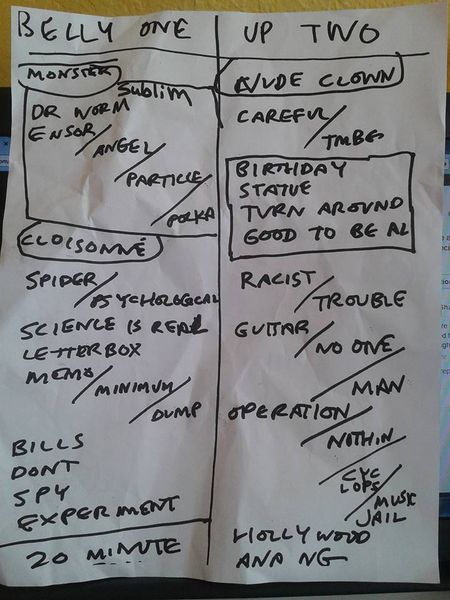 BELLY ONE
MONSTER
SUBLIM
DR WORM
ENSOR/
ANGEL/
PARTICLE/
POLKA
CLOISONNÉ
SPIDER/
PSYCHOLOGICAL
SCIENCE IS REAL
LETTERBOX
MEMO/
MINIMUM/
DUMP
BILLS
DONT
SPY
EXPERIMENT
20 MINUTE
UP TWO
NUDE CLOWN
CAREFUL/
TMBG
BIRTHDAY
STATUE
TURN AROUND
GOOD TO BE AL
RACIST/
TROUBLE
GUITAR/
NO ONE/
MAN
OPERATION/
NOTHIN/
CYC
LOPS/
MUSIC
JAIL
HOLLYWOOD
ANA NG